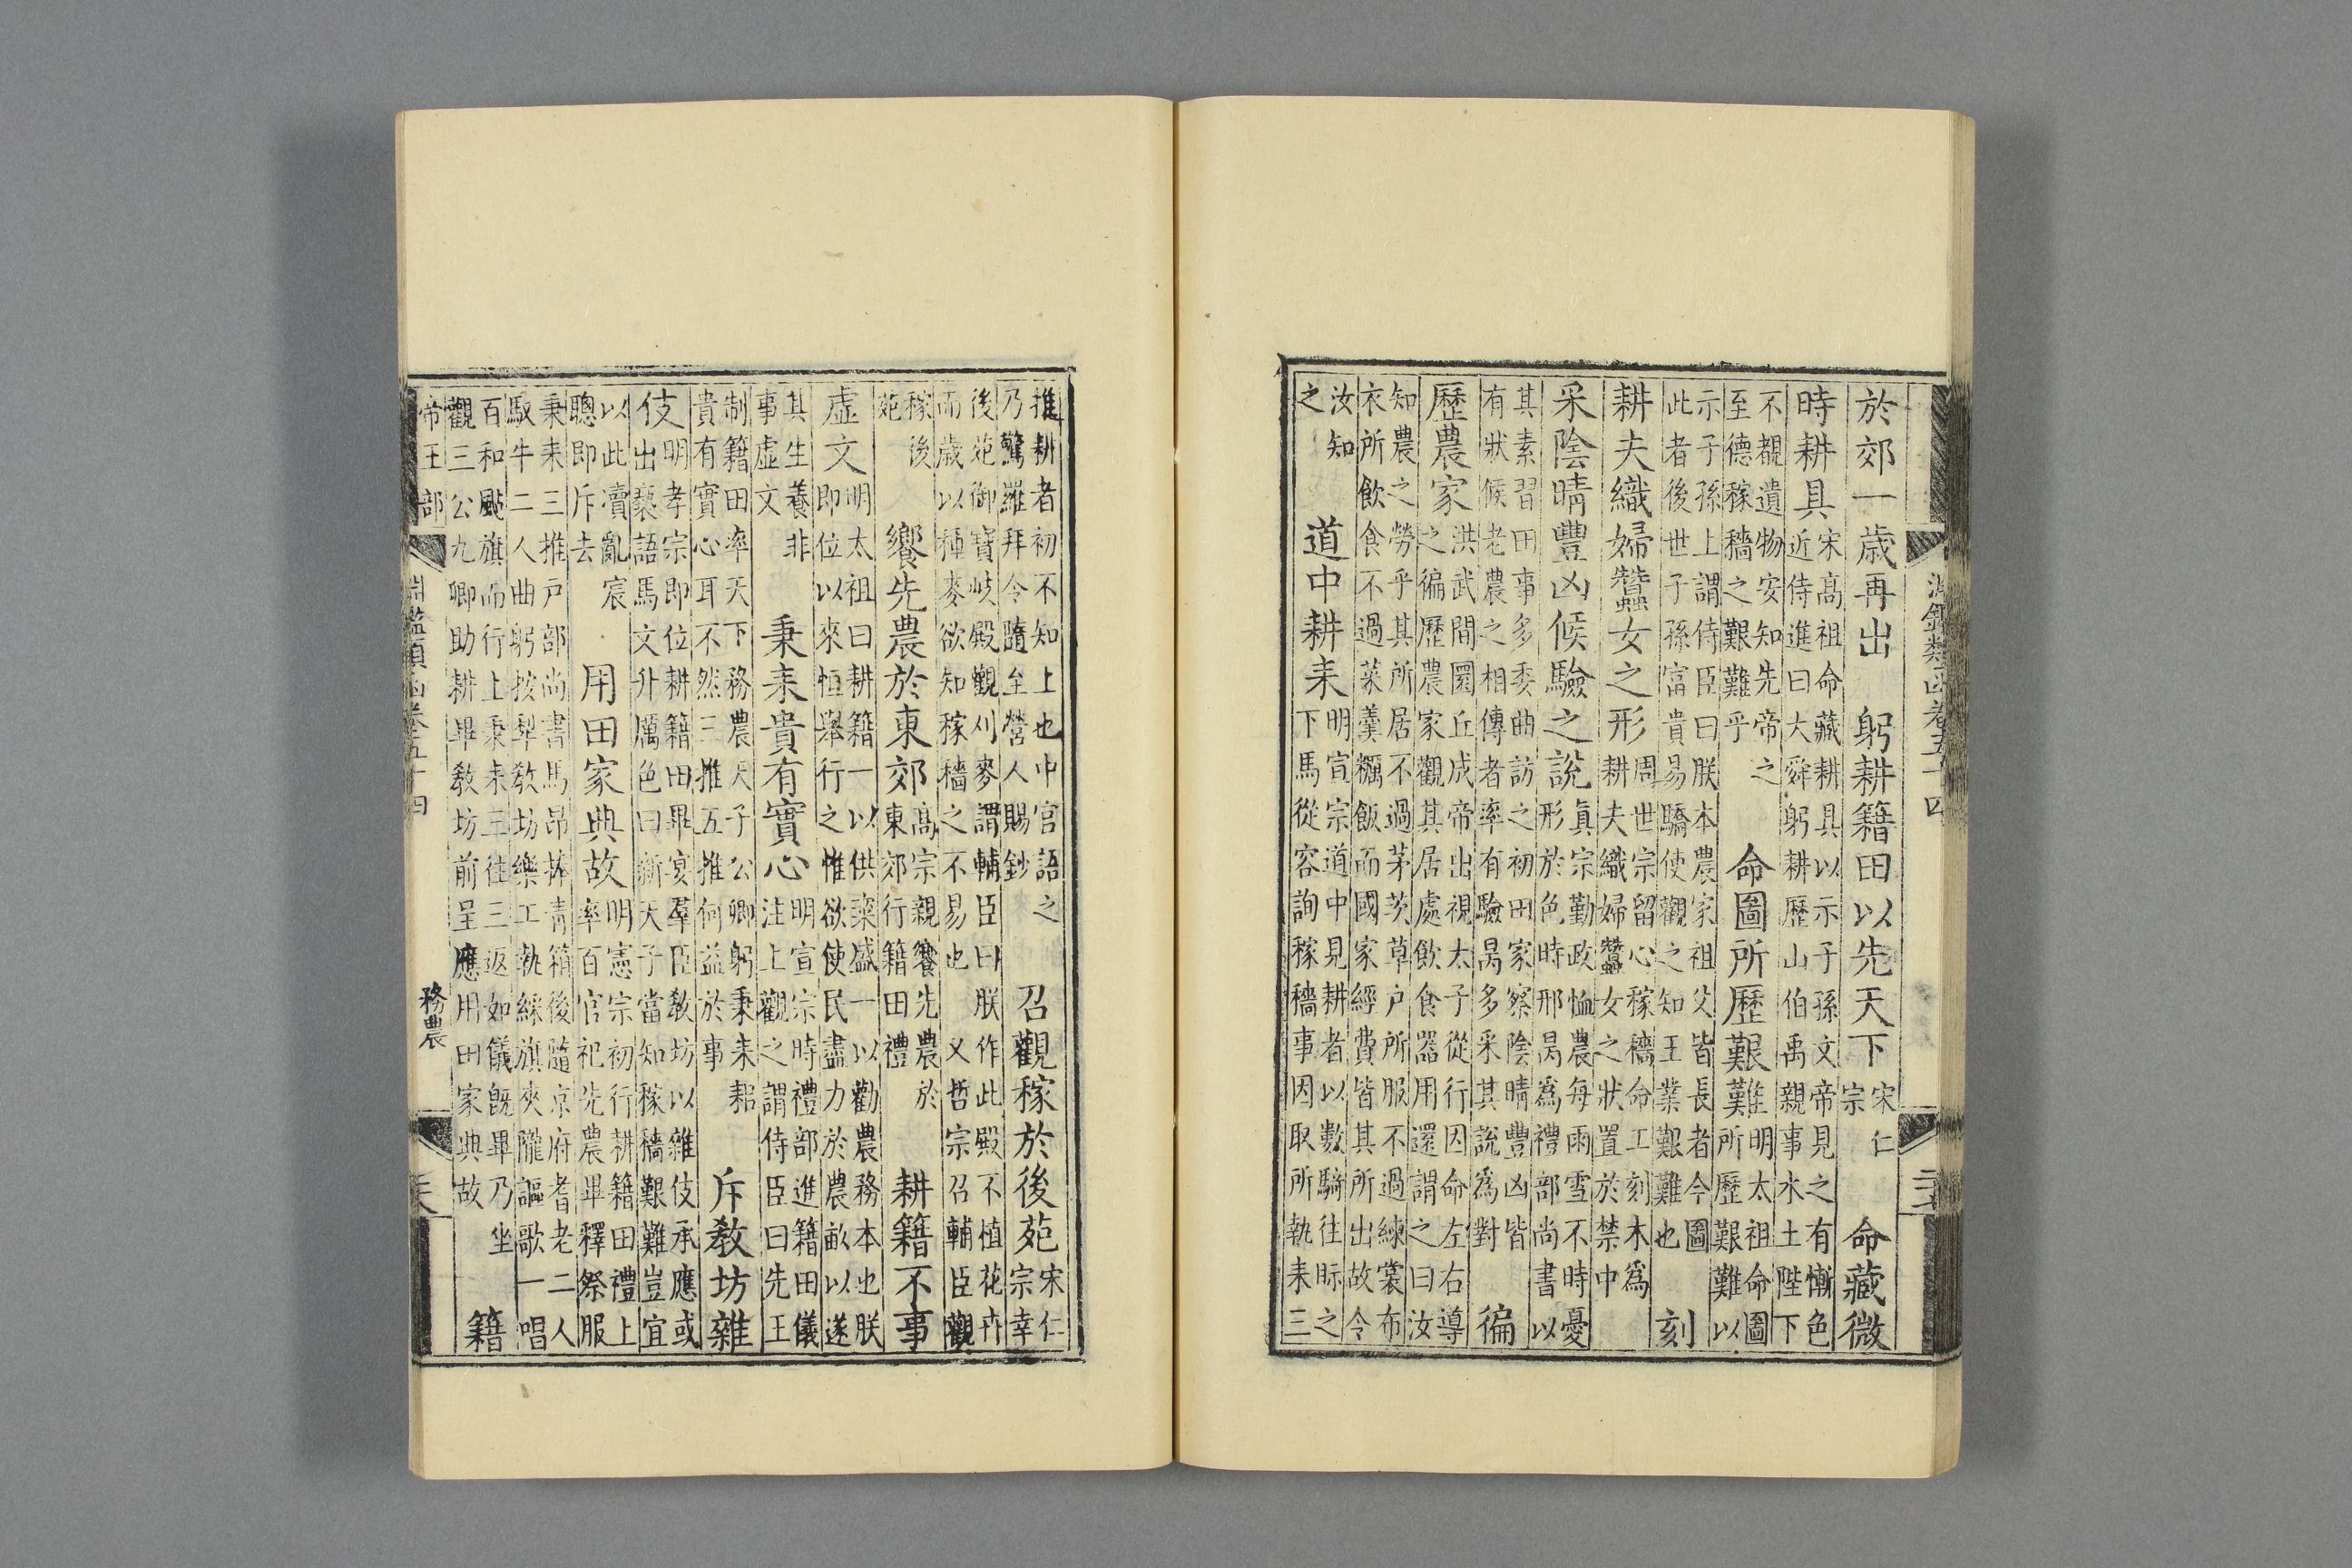 淵鑑類函卷五十四
於郊一歲再出　躬耕籍田以先天下
宋仁
宗
命藏微
時耕具
宋高祖命藏耕具以示子孫文帝見之有慚色
近侍進曰大舜躬耕歷山伯禹親事水土陛下
不覩遺物安知先帝之
至德稼穡之艱難乎
命圖所歷艱難
明太祖命圖
所歷艱難以
示子孫上謂侍臣曰朕本農家祖父皆長者今圖
此者後世子孫富貴易驕使觀之知王業艱難也
刻
耕夫織婦蠶女之形
周世宗留心稼穡命工刻木爲
耕夫織婦蠶女之狀置於禁中
采陰晴豐凶候驗之說
真宗勤政恤農每雨雪不時憂
形於色時邢昺爲禮部尚書以
其素習田事多委曲訪之初田家察陰晴豐凶皆
有狀候老農之相傳者率有驗昺多采其說爲對
徧
歷農家
洪武間圜丘成帝出視太子從行因命左右導
之徧歷農家觀其居處飲食器用還謂之曰汝
知農之勞乎其所居不過茅茨草戶所服不過練裳布
衣所飲食不過菜羹糲飯而國家經費皆其所出故令
汝知
之
道中耕耒
明宣宗道中見耕者以數騎往眎之
下馬從容詢稼穡事因取所執耒三
推耕者初不知上也中官語之
乃驚羅拜令隨至營人賜鈔
召觀稼於後苑
宋仁
宗幸
後苑御寶岐殿觀刈麥謂輔臣曰朕作此殿不植花卉
而歲以種麥欲知稼穡之不易也　又哲宗召輔臣觀
稼後
苑
饗先農於東郊
高宗親饗先農於
東郊行籍田禮
耕籍不事
虛文
明太祖曰耕籍一以供粢盛一以勸農務本也朕
即位以來恒舉行之惟欲使民盡力於農畝以遂
其生養非
事虛文
秉耒貴有實心
明宣宗時禮部進籍田儀
注上觀之謂侍臣曰先王
制籍田率天下務農天子公卿躬秉耒耜
貴有實心耳不然三推五推何益於事
斥教坊雜
伎
明孝宗即位耕籍田畢宴羣臣教坊以雜伎承應或
出褻語馬文升厲色曰新天子當知稼穡艱難豈宜
以此瀆亂宸
聰即斥去
用田家典故
明憲宗初行耕籍田禮上
率百官祀先農畢釋祭服
秉耒三推戶部尚書馬昂捧青箱後隨京府耆老二人
馭牛二人曲躬按犁教坊樂工執綵旗夾隴謳歌一唱
百和颭旗而行上秉耒三往三返如儀旣畢乃坐
觀三公九卿助耕畢教坊前呈應用田家典故
籍
帝王部
淵鑑類函卷五十四
務農